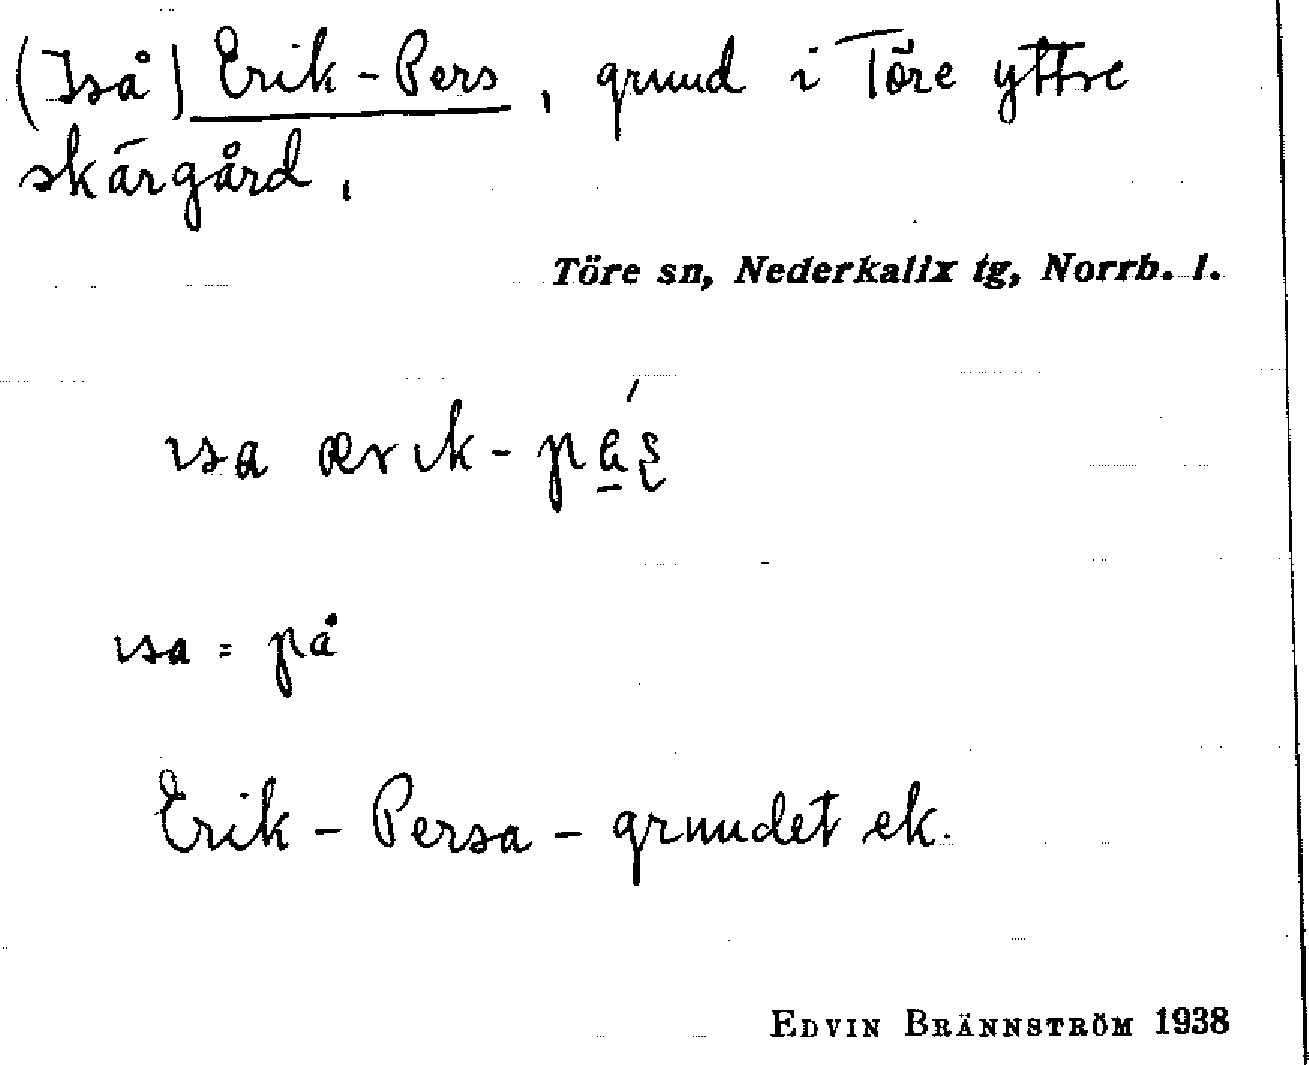 (Iså) Erik-Pers, grund i Töre yttre
skärgård.
Töre sn, Nederkalix tg, Norrb. l.
ısa ærık-pa̱ʂ́
ısa = på
Erik-Persa-grundet ek.
EDVIN BRÄNNSTRÖM 1938